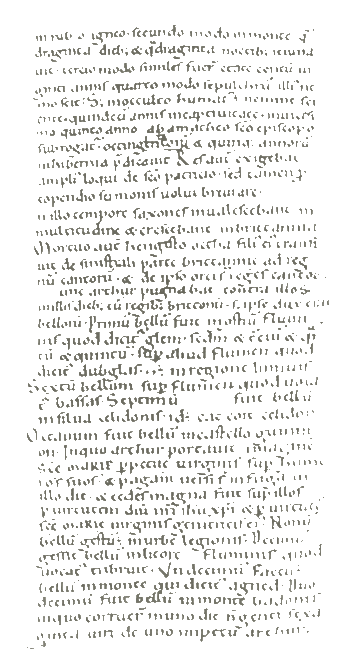 in rub: o igneo. secundo modo in monte q̃
draginta dieb; & q̃draginta noctib; ieiuna
uit. tercio modo similes fuer̃ etate centũ ui
ginti annis. quarto modo sepulchrũ illi' ne
mo scit. S; in occulto humat' ẽ nemine sci
ente. quindecĩ annis in captiuitate. in uicesi
mo quinto anno. ab amatheo sc̃o episcopo
subrogat'. octingentorũ & quinq; annorũ
in hibernia p̃dicauit. Res aut̃ exigebat
ampli' loqui de sc̃o patricio. sed tamen p̃
copendio sermonis uolui breuiare.
In illo tempore saxones inualescebant in
multitudine & crescebant in brittannia.
Mortuo aut̃ hengisto octha fili' ei' transi
uit de sinistrali parte brittannie ad reg
nũ cantorũ. & de ipso orti s̃ reges cantor̃.
Tunc arthur pugnabat contra illos.
in illis dieb; cũ regib; brittonũ. s; ipse dux erat
bellorũ. Primũ bellũ fuit in ostiũ flumi
nis quod dicit' glein. scd̃m & t̃ciũ & q̃r
tũ & quintũ. sup̃ aliud flumen quod
dicit' dubglas. & ẽ in regione linnuis.
Sextũ bellum sup̃ flumen quod uoca
t' bassas. Septimũ fuit bellũ
in silua celidonis. id ẽ cat coit celidon.
Octauum fuit bellũ in castello guinni
on. In quo arthur portauit imaginẽ
sc̃e marie p̃petue uirginis sup̃ hume
ros suos. & pagani uersi s̃ in fuga in
illo die. & cedes magna fuit sup̃ illos
p̃ uirtutem dñi nr̃i ihũ xp̃i & p̃ uirtutẽ
sc̃e marie uirginis genitricis ei'. Nonũ
bellũ gestũ ẽ in urbe legionis. Decimũ
gessit bellũ in litore fluminis quod
uocat' tribruit. Undecimũ factũ ẽ
bellũ in monte qui dicit' agned. Duo
decimũ fuit bellũ in monte badonis.
in quo corruer̃ in uno die nongenti sexa
ginta uiri de uno impetu arthur.